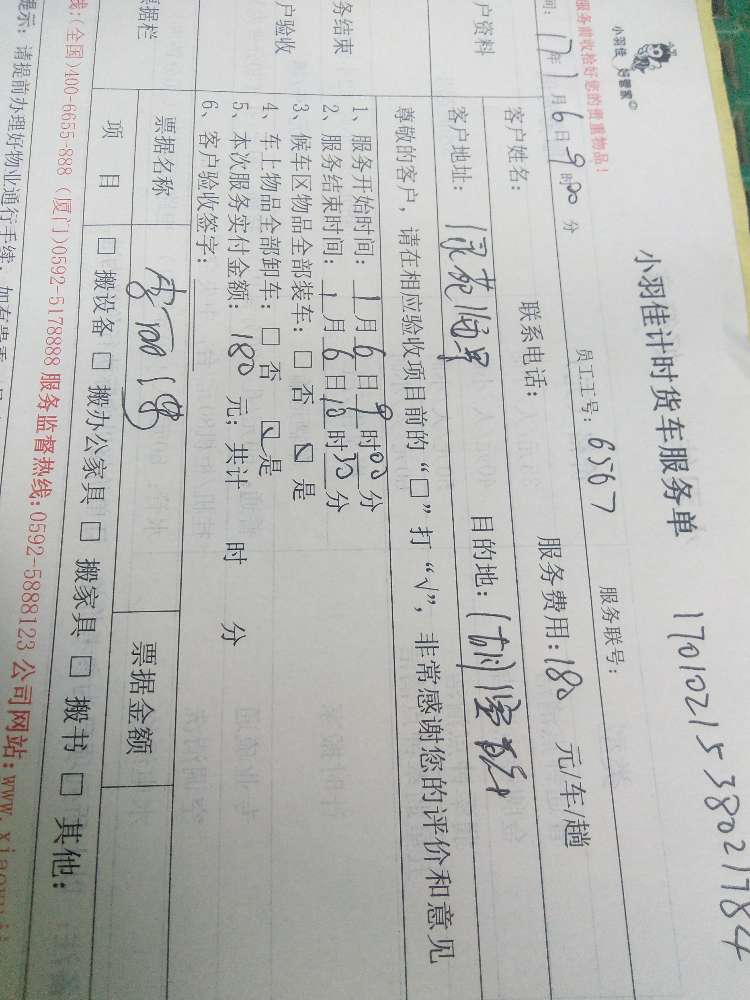 小羽佳 好管家
小羽佳计时货车服务单
1701021538021784
服务前收检好您的贵重物品!
间: 17年1月6日9时00分
员工工号: 6567
服务联号:
户资料
客户姓名: 联系电话: 服务费用:180 元/车/趟
客户地址: 目的地:
尊敬的客户,请在相应验收项目前的“□”打“√”,非常感谢您的评价和意见
务结束
户验收
1、服务开始时间: 1月6日9时00分
2、服务结束时间: 1月6日10时30分
3、候车区物品全部装车: □ 否 ☑ 是
4、车上物品全部卸车: □ 否 ☑ 是
5、本次服务实付金额: 180 元; 共计 时 分
6、客户验收签字:
票据栏
票据名称 票据金额
项 目 □ 搬设备 □ 搬办公家具 □ 搬家具 □ 搬书 □ 其他:
线:(全国)400-6655-888 (厦门)0592-5178888 服务监督热线:0592-5888123 公司网站:www.xiaoyuj
提示: 请提前办理好物业通行手续,如有贵重